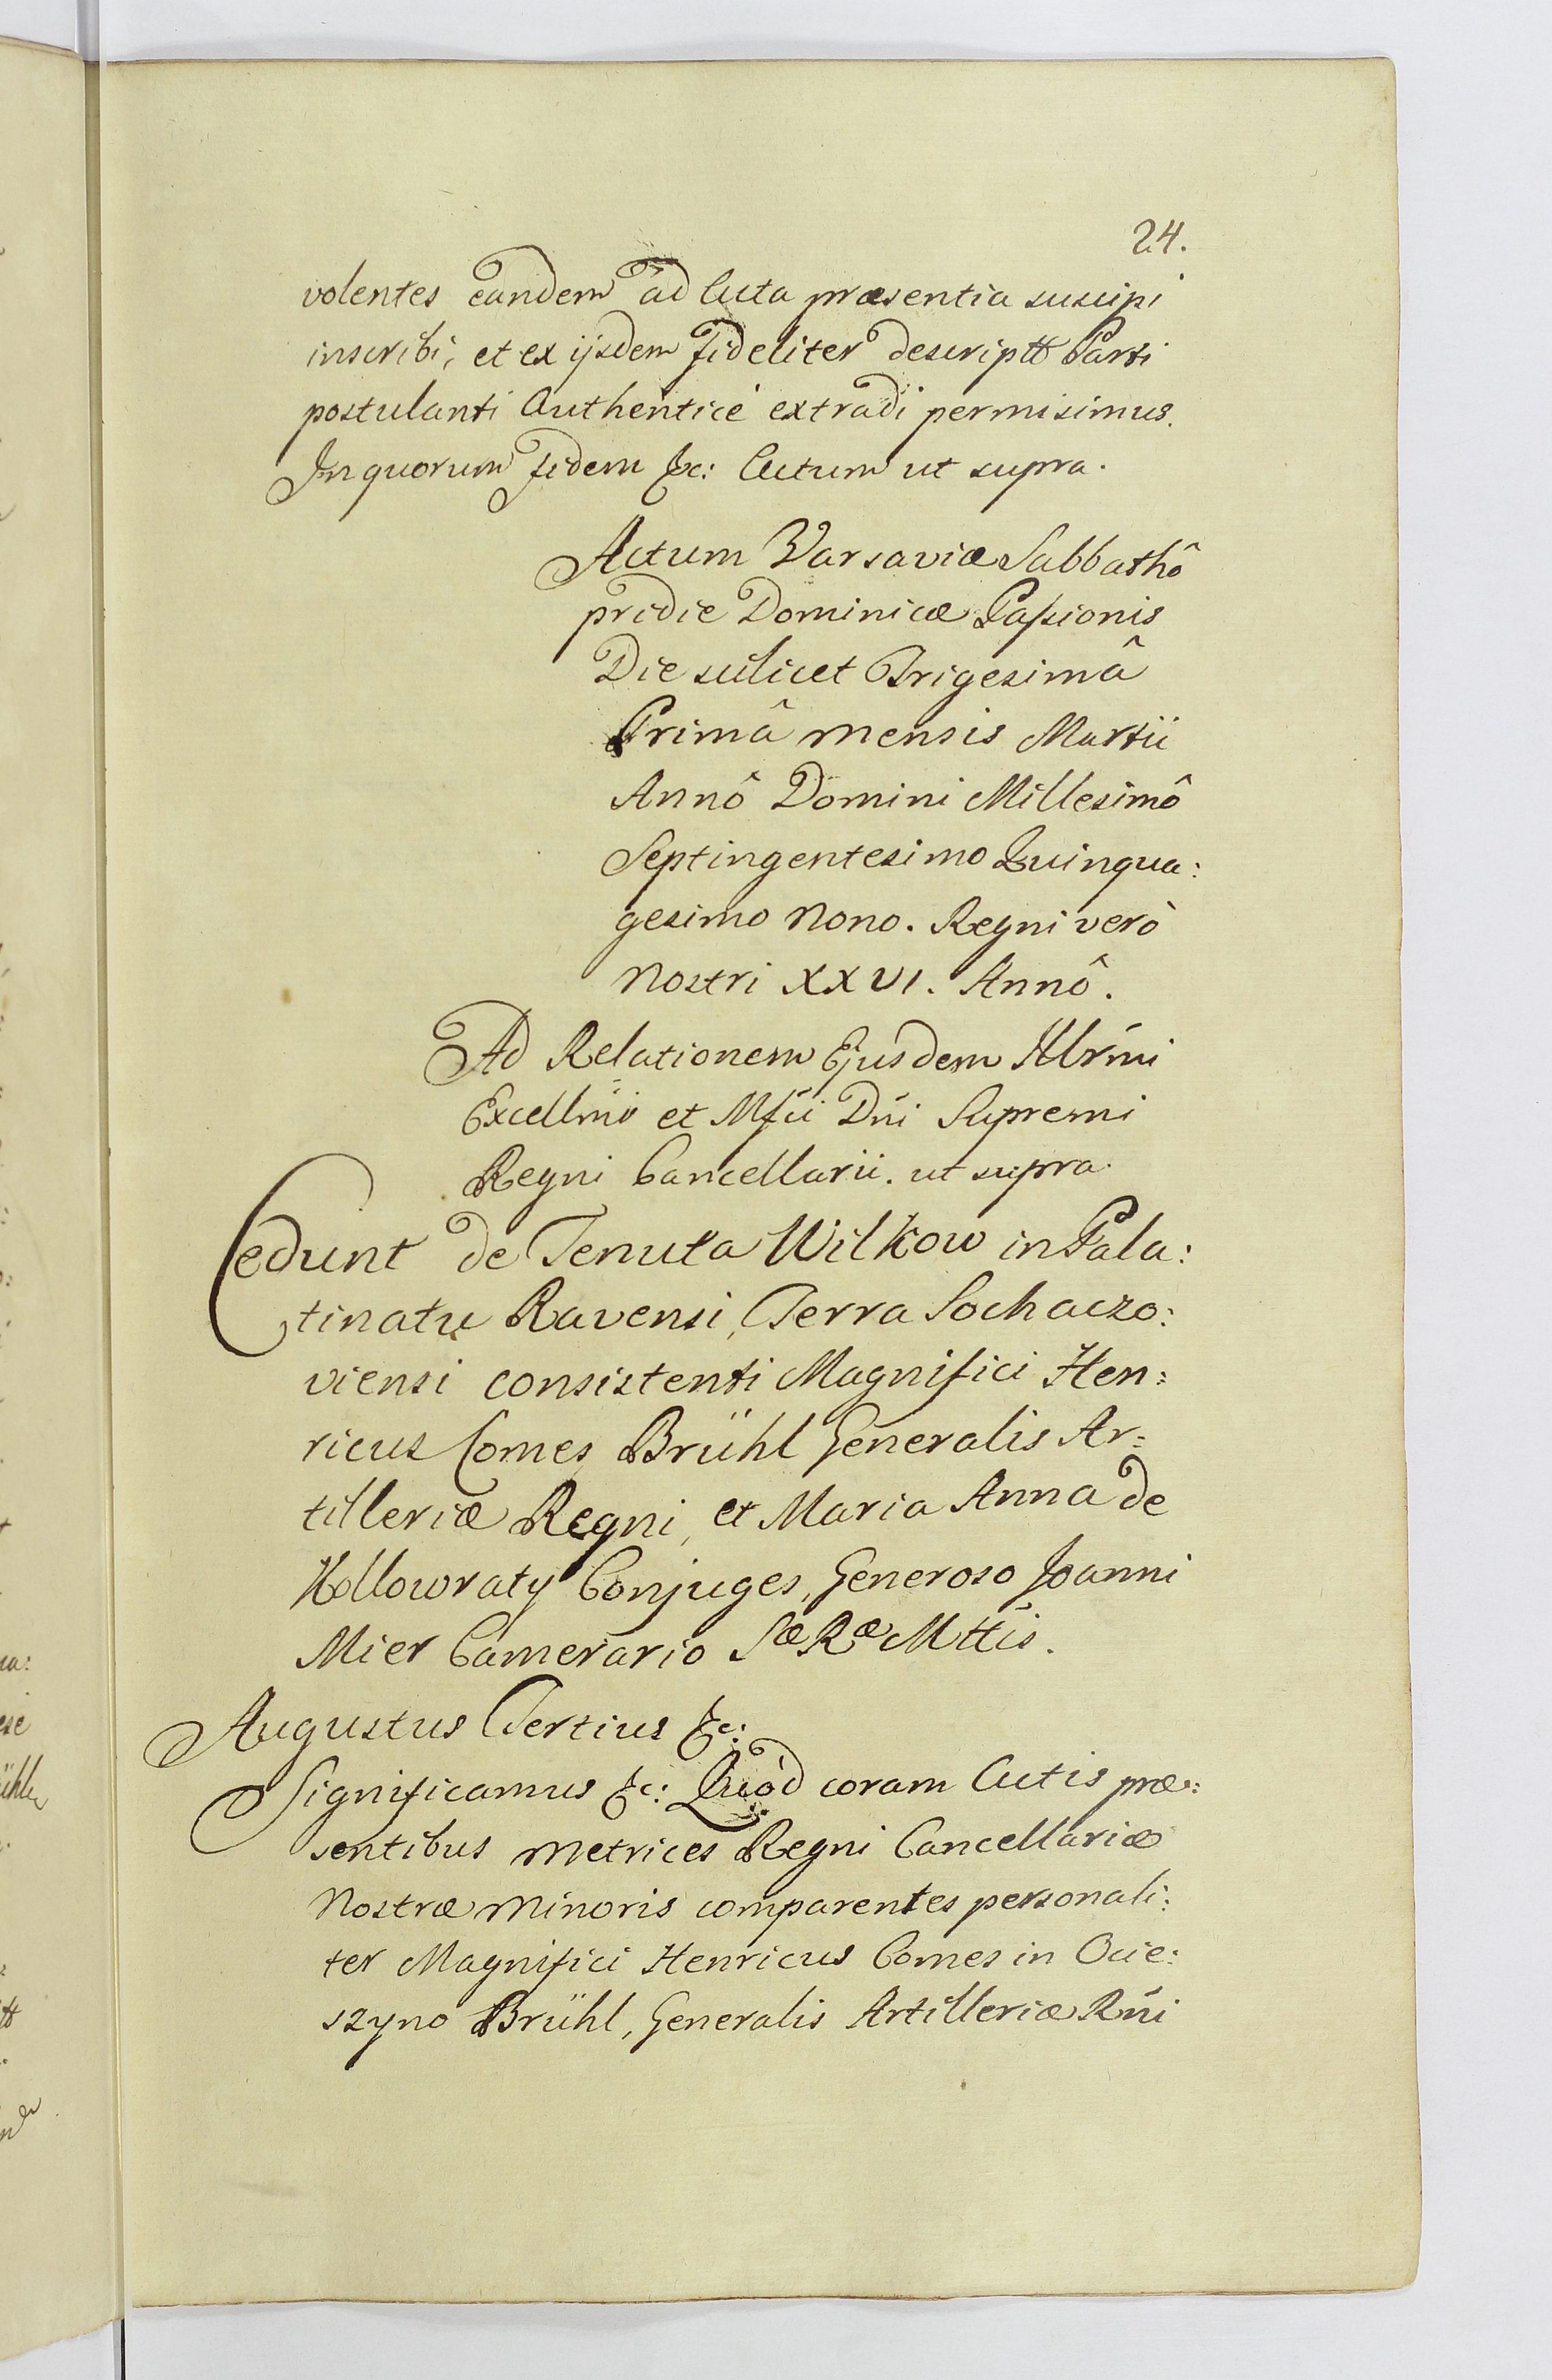 24.
volentes eandem ad Acta præsentia suscipi
inscribi, et ex ijsdem fideliter descriptt Parti
postulanti Authenticè extradi permisimus.
In quorum fidem &c: Actum ut supra.
Actum Varsaviæ Sabbathô
pridie Dominicæ Passionis
Die scilicet Trigesimâ
Primâ mensis Martii
Annô Domini Millesimô
Septingentesimo Quinqua:
gesimo Nono. Regni verò
Nostri XXVI. Annô.
Ad Relationem Ejusdem Illrmi
Excellmi et Mfci Dni Supremi
Regni Cancellarii. ut supra.
Cedunt de Tenuta Wilkow in Pala:
tinatu Ravensi, Terra Sochaczo:
viensi consistenti Magnifici Hen:
ricus Comes Brühl Generalis Ar:
tilleriæ Regni, et Maria Anna de
Kollowraty Conjuges, Generoso Joanni
Mier Camerario Sæ Ræ Mttis.
Augustus Tertius &c:
Significamus &c: Quòd coram Actis præ:
sentibus Metrices Regni Cancellariæ
Nostræ Minoris comparentes personali:
ter Magnifici Henricus Comes in Ocie:
szyno Brühl, Generalis Artilleriæ Rni